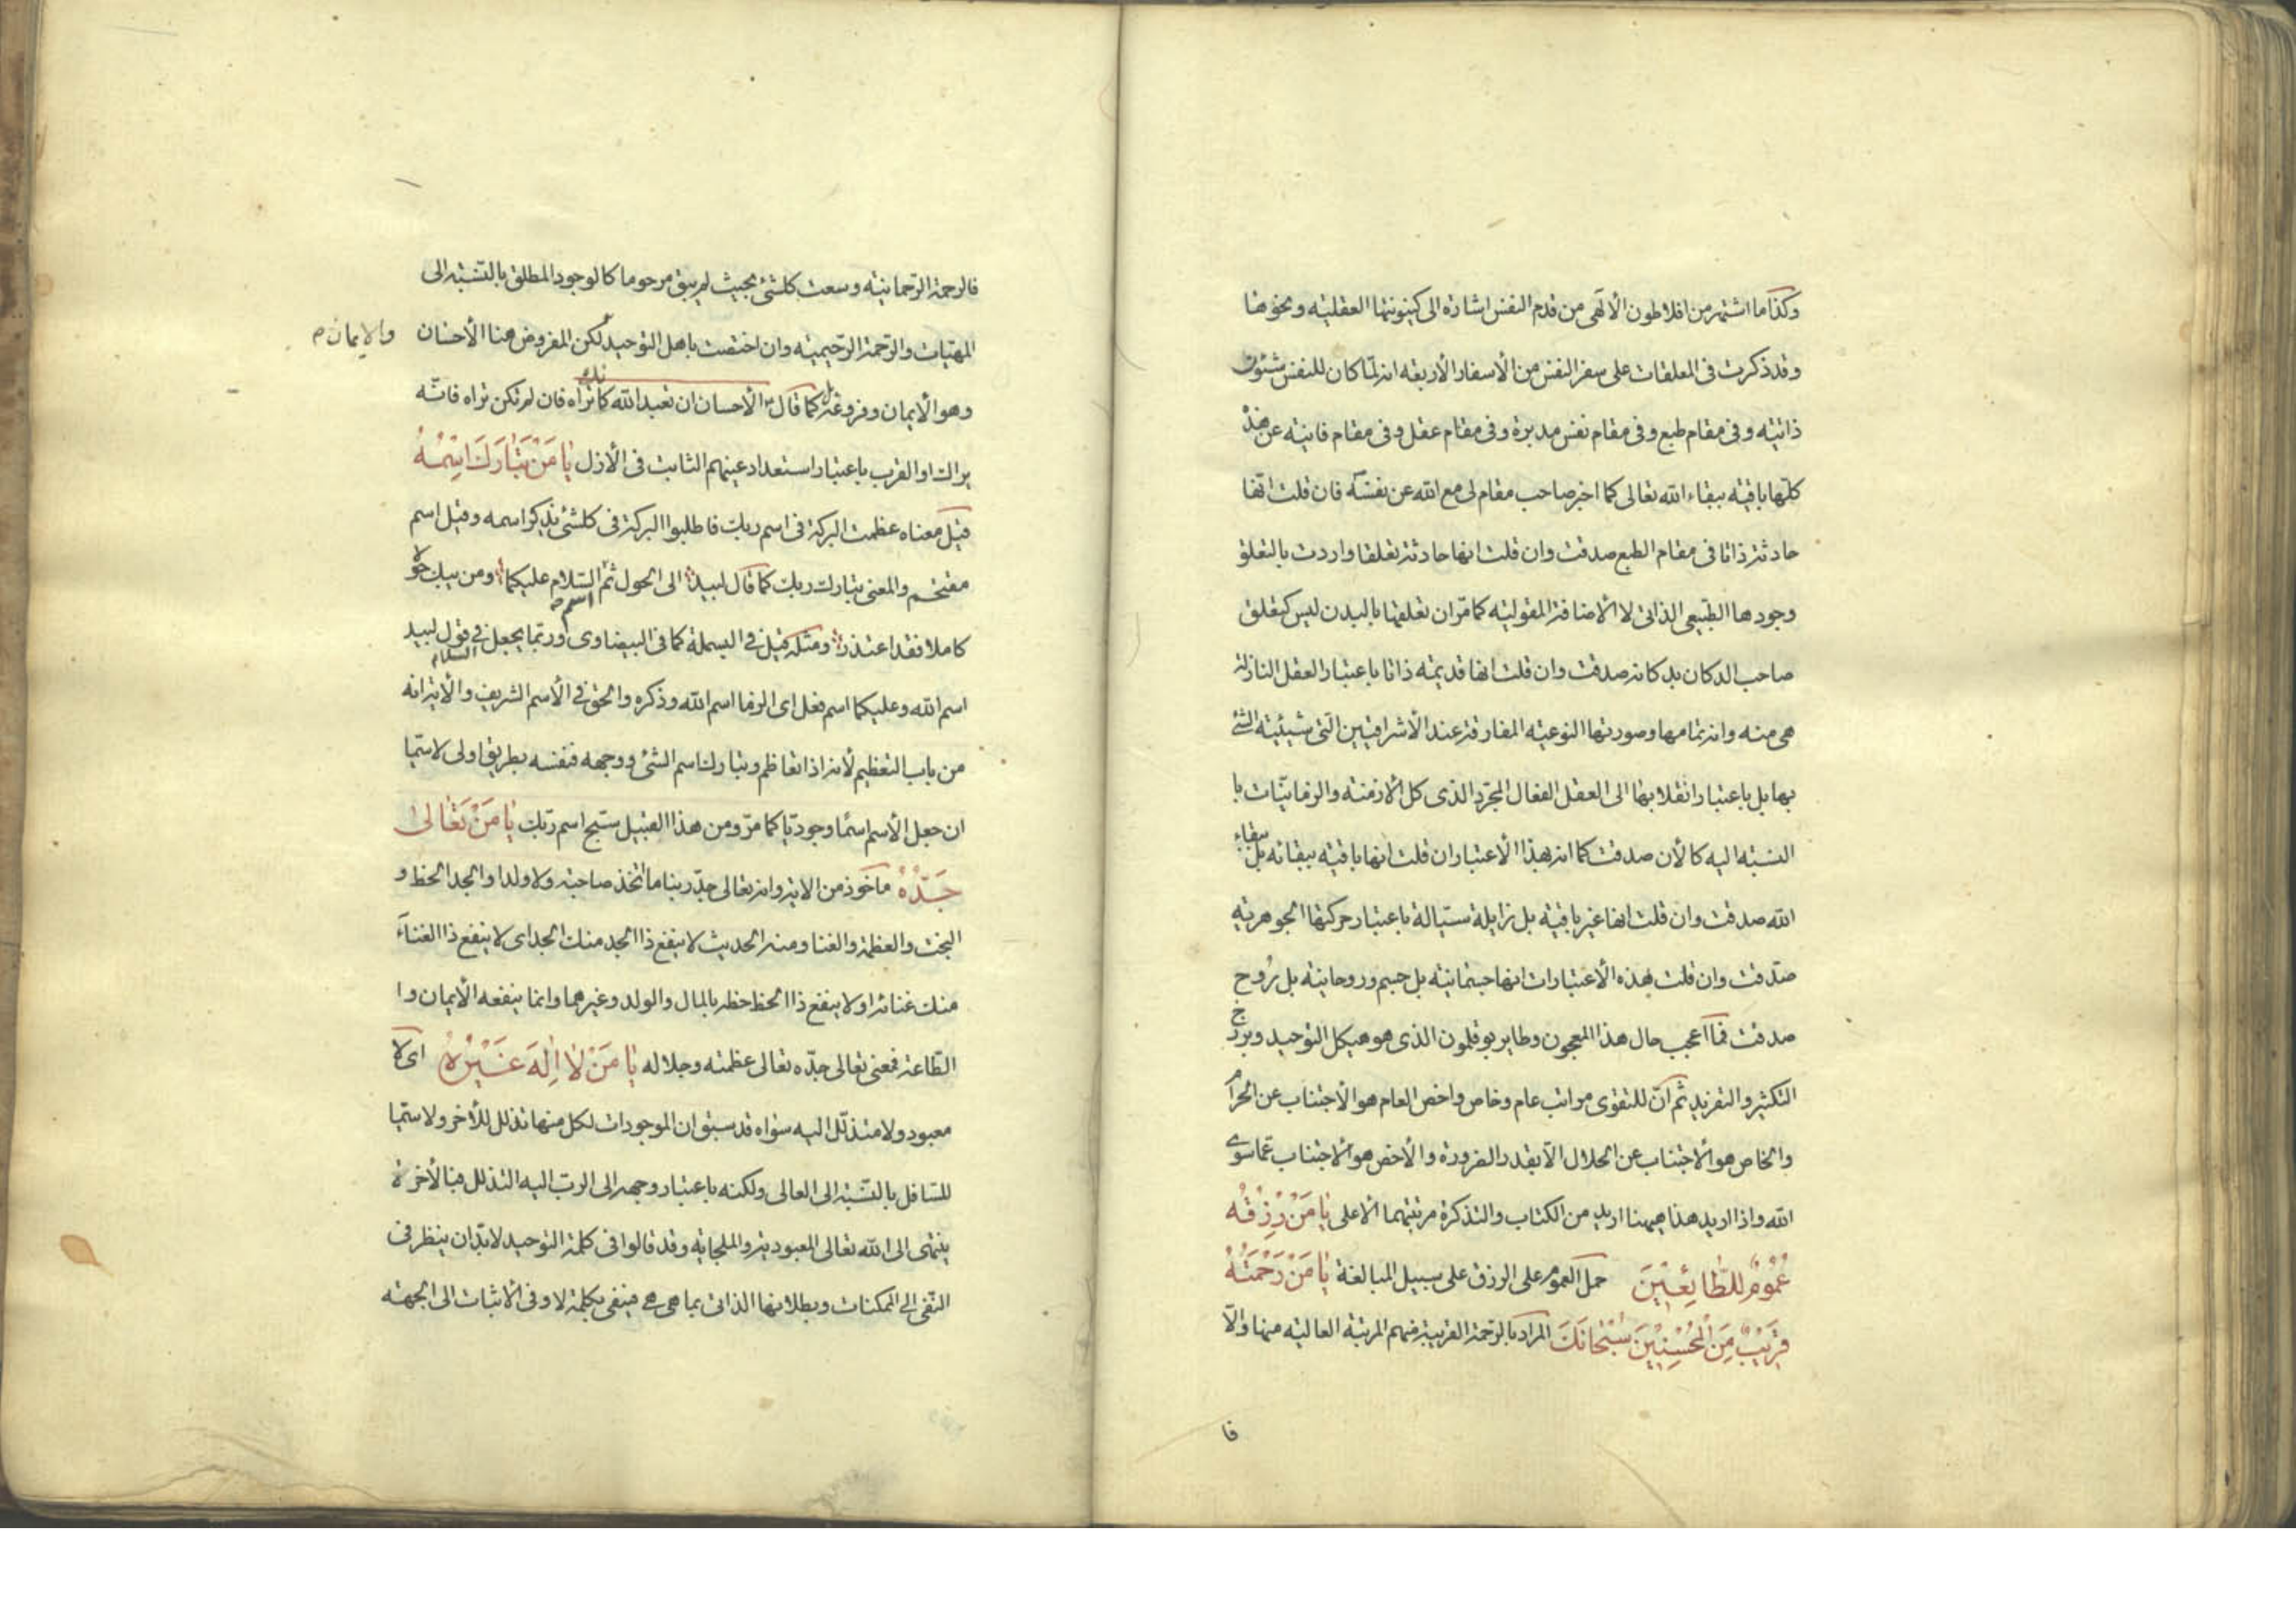 وكذا ما اشتهر من افلاطون الالهى من قدم النفس اشارة الى كينونتها العقليه ونحوها
وقد ذكرت فى المعلقات على سفر النفس من الأسفار الأربعه انه لما كان للنفس شئون
ذاتيه وفى مقام طبع وفى مقام نفس مدبرة وفى مقام عقل وفى مقام فانيه عن هذه
كلها باقيه ببقاء الله تعالى كما اخبر صاحب مقام لى مع الله عن نفسه فان قلت انها
حادثة ذاتا فى مقام الطبع صدقت وان قلت انها حادثة تعلقا واردت بالتعلق
وجودها الطبيعى الذاتى لا الاضافة المقوليه كما مر ان تعلقها بالبدن ليس كتعلق
صاحب الدكان بدكانه صدقت وان قلت انها قديمه ذاتا باعتبار العقل النازلة
هى منه وانه تمامها وصورتها النوعيه المفارقة عند الأشراقيين التى شيئيه الشئ
بها بل باعتبار انقلابها الى العقل الفعال المجرد الذى كل الازمنه والزمانيات با
النسبه اليه كالأن صدقت كما انه بهذا الاعتبار ان قلت انها باقيه ببقائه بل ببقاء
الله صدقت وان قلت انها غير باقيه بل زايلة سيالة باعتبار حركتها الجوهريه
صدقت وان قلت بهذه الأعتبارات انها جسمانيه بل جسم وروحانيه بل روح
صدقت فما اعجب حال هذا المعجون وطاير بوقلمون الذى هو هيكل التوحيد وبرزخ
التكثير والتفريد ثم ان للتقوى مراتب عام وخاص واخص العام هو الأجتناب عن الحرام
والخاص هو الاجتناب عن الحلال الا بقدر الضرورة والأخص هو الاجتناب عما سوى
الله واذا اريد هذا هيهنا اريد من الكتاب والتذكرة مرتبتهما الاعلى يا من رزقه
عموم للطائعين حمل العموم على الرزق على سبيل المبالغة يا من رحمته
قريب من المحسنين سبحانك المراد بالرحمة القريبة منهم المرتبة العاليه منها والا
فا
فالرحمة الرحمانيه وسعت كلشئ بحيث لم يبق مرحوما كالوجود المطلق بالنسبه الى
المهيات والرحمة الرحيميه وان اختصت باهل التوحيد لكن المفروض هنا الأحسان
والايمان م
وهو الأيمان وفروعه كما قال الأحسان ان تعبد الله كانك تراه فان لم تكن تراه فانه
يراك او القرب باعتبار استعداد عينهم الثابت فى الأزل يا من تبارك اسمه
قيل معناه عظمت البركة فى اسم ربك فاطلبوا البركة فى كلشئ بذكر اسمه وقيل اسم
مقتحم والمعنى تبارك ربك كما قال لبيد الى الحول ثم اسم السلام عليكما ومن يبك حولا
كاملا فقد اعتذر ومثله قيل فى البسملة كما فى البيضاوى وربما يجعل فى قول لبيد السلام
اسم الله وعليكما اسم فعل اى الزما اسم الله وذكره والحق فى الأسم الشريف والأية انه
من باب التعظيم لأنه اذا تعاظم وتبارك اسم الشئ ووجهه فنفسه بطريق اولى لاسيما
ان جعل الأسم اسما وجوديا كما مر ومن هذا القبيل سبح اسم ربك يا من تعالى
جده ماخوذ من الاية وانه تعالى جد ربنا ما اتخذ صاحبة ولا ولدا والجد الحظ و
البخت والعظمة والغنا ومنه الحديث لا ينفع ذا الجد منك الجد اى لا ينفع ذا الغناء
منك غنائه او لا ينفع ذا الحظ حظه بالمال والولد وغيرهما وانما ينفعه الأيمان وا
الطاعة فمعنى تعالى جده تعالى عظمته وجلاله يا من لا اله غيره اى لا
معبود ولا متذلل اليه سواه قد سبق ان الموجودات لكل منها تذلل للأخر ولا سيما
للسافل بالنسبة الى العالى ولكنه باعتبار وجهه الى الرب اليه التذلل فبالأخرة
ينتهى الى الله تعالى المعبوديه والملجائيه وقد قالوا فى كلمة التوحيد لابد ان ينظر فى
النفى الى الممكنات وبطلانها الذاتى بما هى هى فينفى بكلمة لا وفى الاثبات الى الجهته